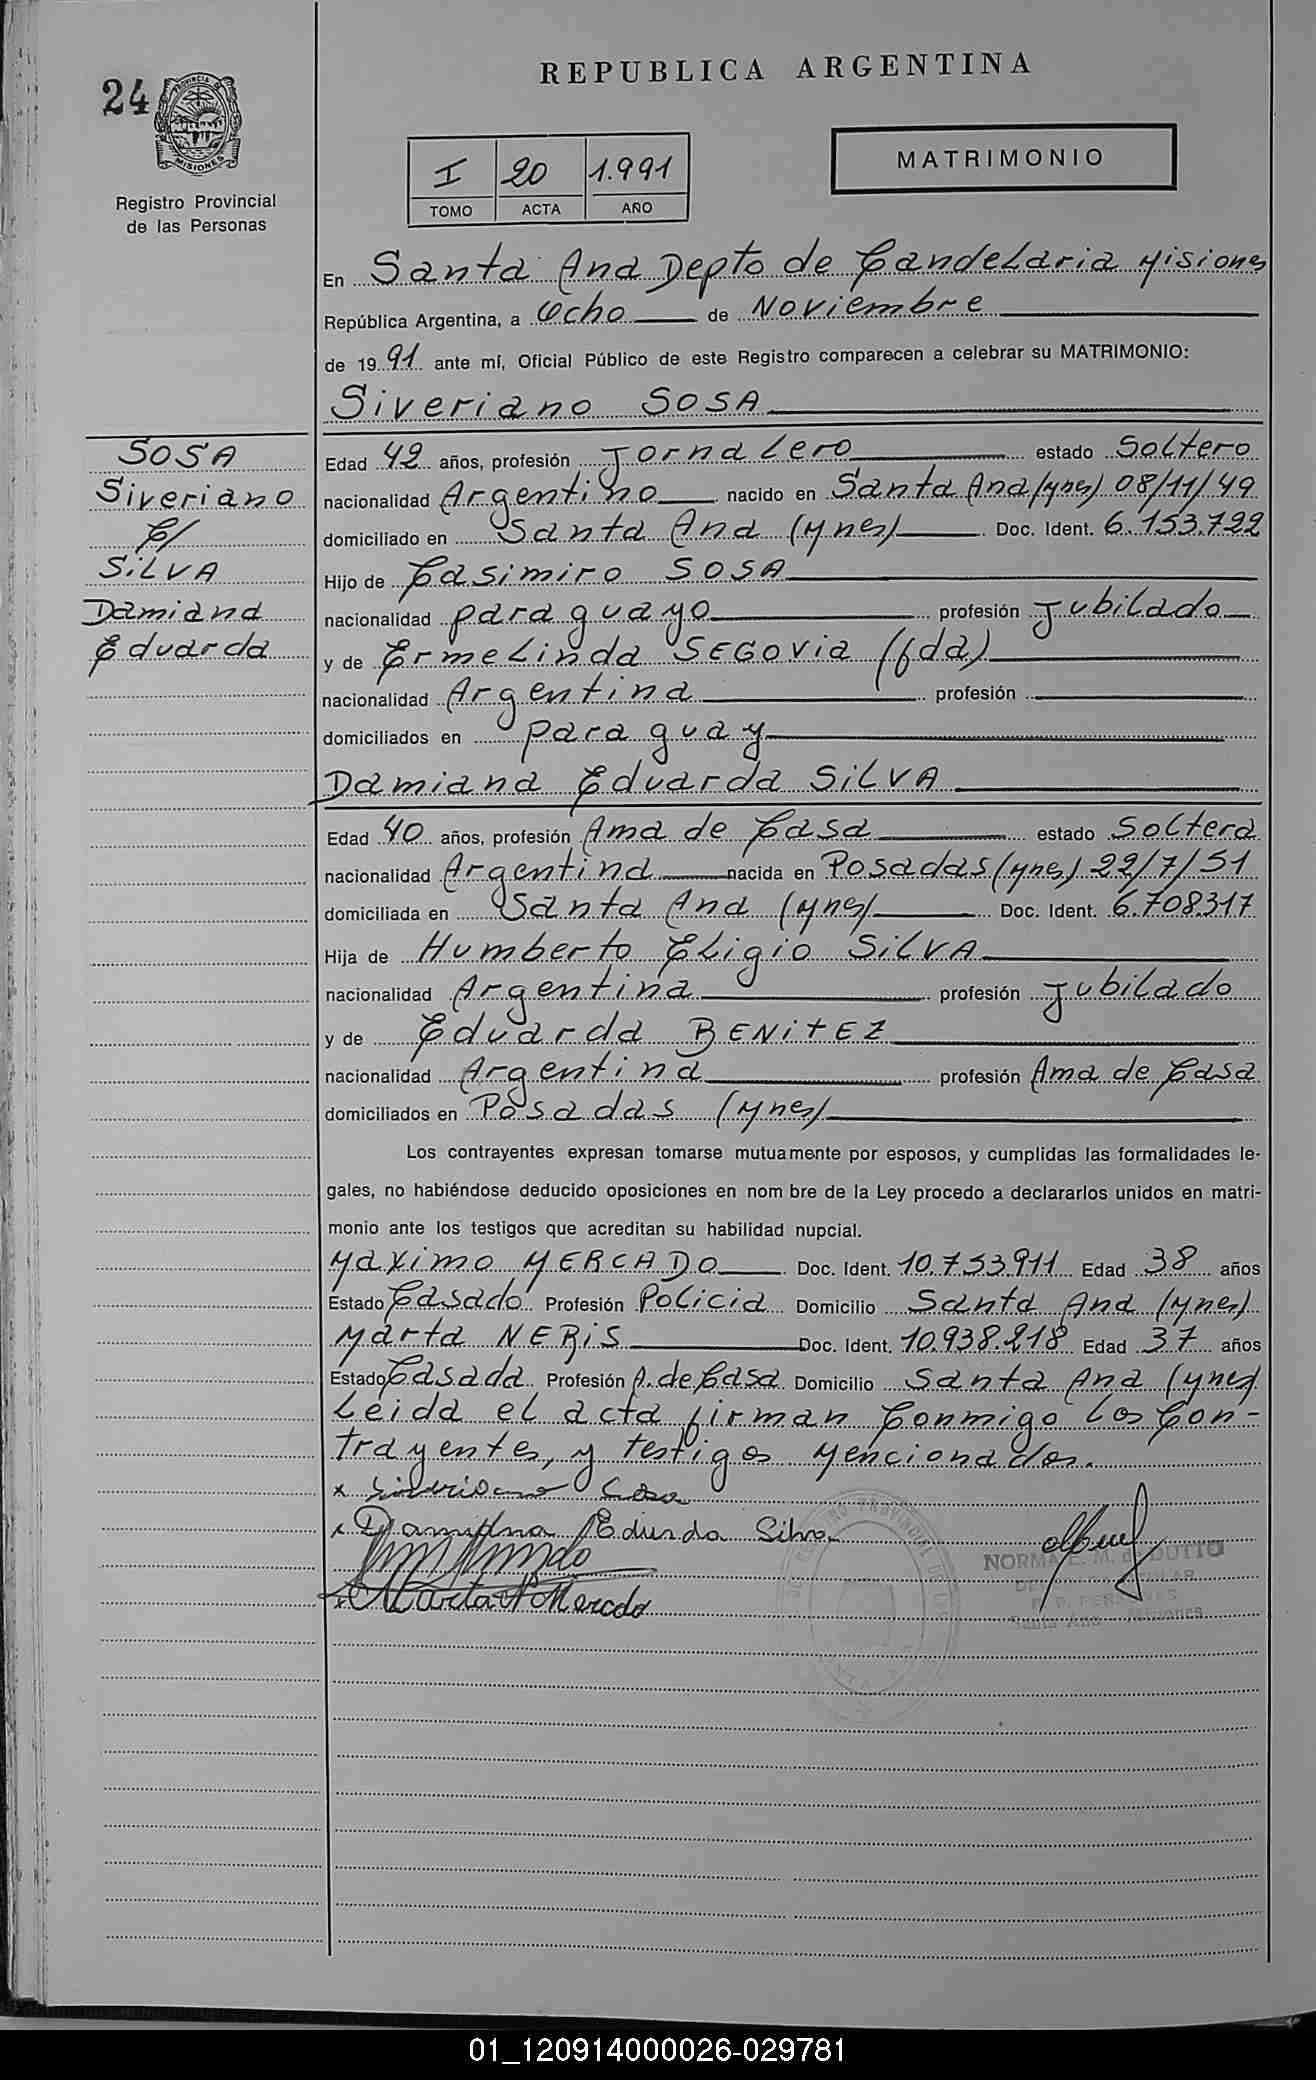 REPUBLICA ARGENTINA
24
PROVINCIA D
MISIONES
Registro Provincial
de las Personas
I 20 1.991
TOMO ACTA AÑO
MATRIMONIO
En Santa Ana Depto de Candelaria Misiones
República Argentina, a Ocho de Noviembre
de 19 91 ante mí, Oficial Público de este Registro comparecen a celebrar su MATRIMONIO:
Siveriano SOSA
SOSA
Siveriano
C/
SILVA
Damiana
Eduarda
Edad 42 años, profesión Jornalero estado Soltero
nacionalidad Argentino nacido en Santa Ana (Mnes) 08/11/49
domiciliado en Santa Ana (Mnes) Doc. Ident. 6.153.722
Hijo de Casimiro SOSA
nacionalidad paraguayo profesión Jubilado
y de Ermelinda SEGOVIA (fda)
nacionalidad Argentina profesión
domiciliados en paraguay
Damiana Eduarda SILVA
Edad 40 años, profesión Ama de Casa estado Soltera
nacionalidad Argentina nacida en Posadas (Mnes) 22/7/51
domiciliada en Santa Ana (Mnes) Doc. Ident. 6.708.317
Hija de Humberto Eligio SILVA
nacionalidad Argentina profesión Jubilado
y de Eduarda BENITEZ
nacionalidad Argentina profesión Ama de Casa
domiciliados en Posadas (Mnes)
Los contrayentes expresan tomarse mutuamente por esposos, y cumplidas las formalidades le-
gales, no habiéndose deducido oposiciones en nom bre de la Ley procedo a declararlos unidos en matri-
monio ante los testigos que acreditan su habilidad nupcial.
Maximo MERCADO Doc. Ident. 10.753.911 Edad 38 años
Estado Casado Profesión Policia Domicilio Santa Ana (Mnes)
Marta NERIS Doc. Ident. 10.938.218 Edad 37 años
Estado Casada Profesión A. de Casa Domicilio Santa Ana (Mnes)
Leida el acta firman Conmigo los Con-
trayentes, y testigos Mencionados.
x Siveriano Sosa
x Damiana Eduarda Silva
Marta N Mercado
NORMA E. M. de DUTTO
Santa Ana Misiones
01_120914000026-029781